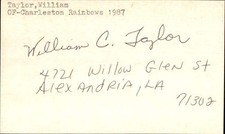 Taylor,William
OF-Charleston Rainbows 1987
William C. Taylor
4721 Willow Glen St
Alexandria, LA
71302